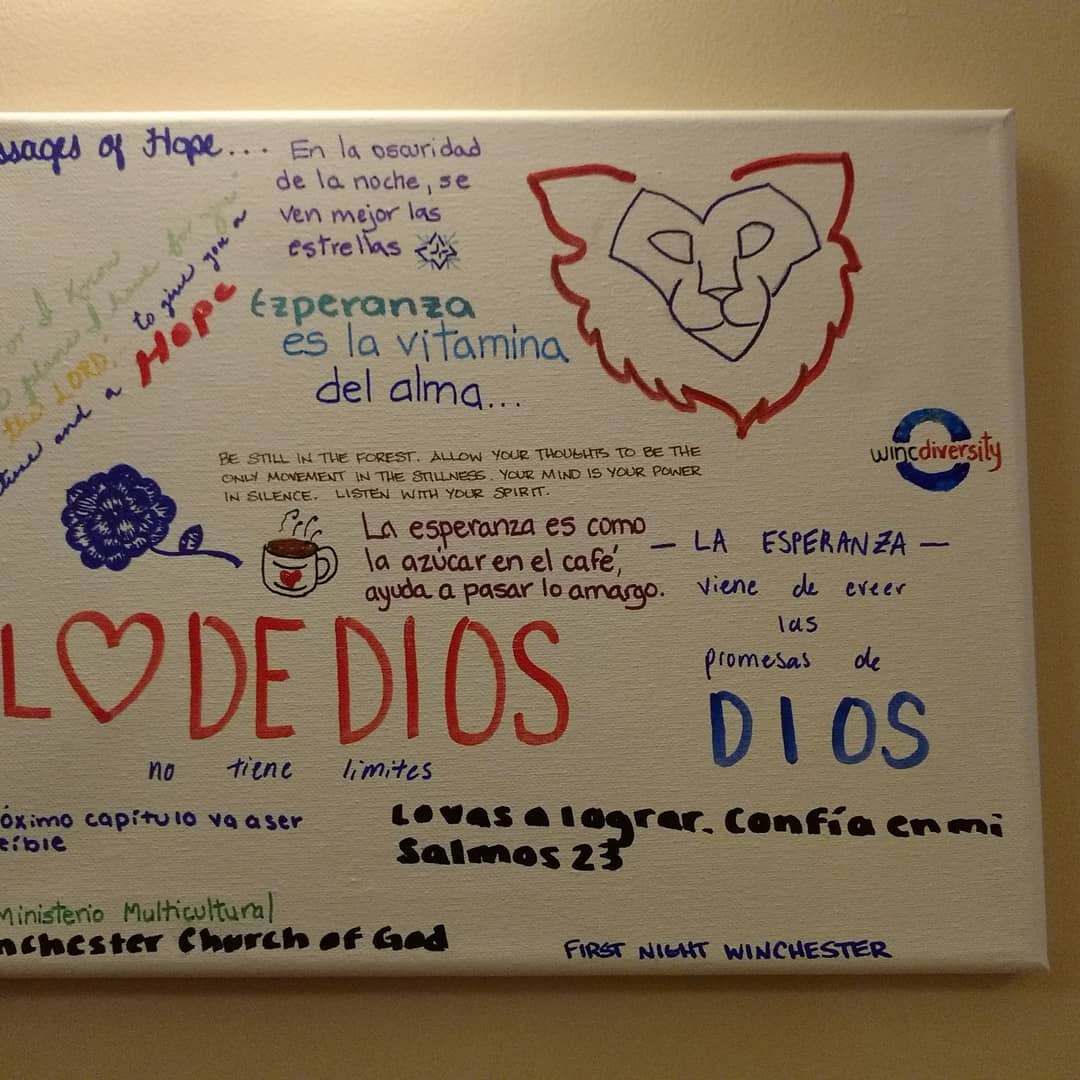 ssages of Hope...
En la oscuridad
de la noche, se
ven mejor las
estrellas
or I know
plans I have for you
the LORD.
to give you a
Hope
ture and a
Ezperanza
es la vitamina
del alma...
wincdiversity
BE STILL IN THE FOREST. ALLOW YOUR THOUGHTS TO BE THE
ONLY MOVEMENT IN THE STILLNESS. YOUR MIND IS YOUR POWER
IN SILENCE. LISTEN WITH YOUR SPIRIT.
La esperanza es como
la azúcar en el café,
ayuda a pasar lo amargo.
— LA ESPERANZA —
viene de creer
las
promesas de
DIOS
L DE DIOS
no tiene limites
óximo capítulo va a ser
eíble
Lo vas a lograr. Confía en mi
Salmos 23
Ministerio Multicultural
nchester Church of God
FIRST NIGHT WINCHESTER